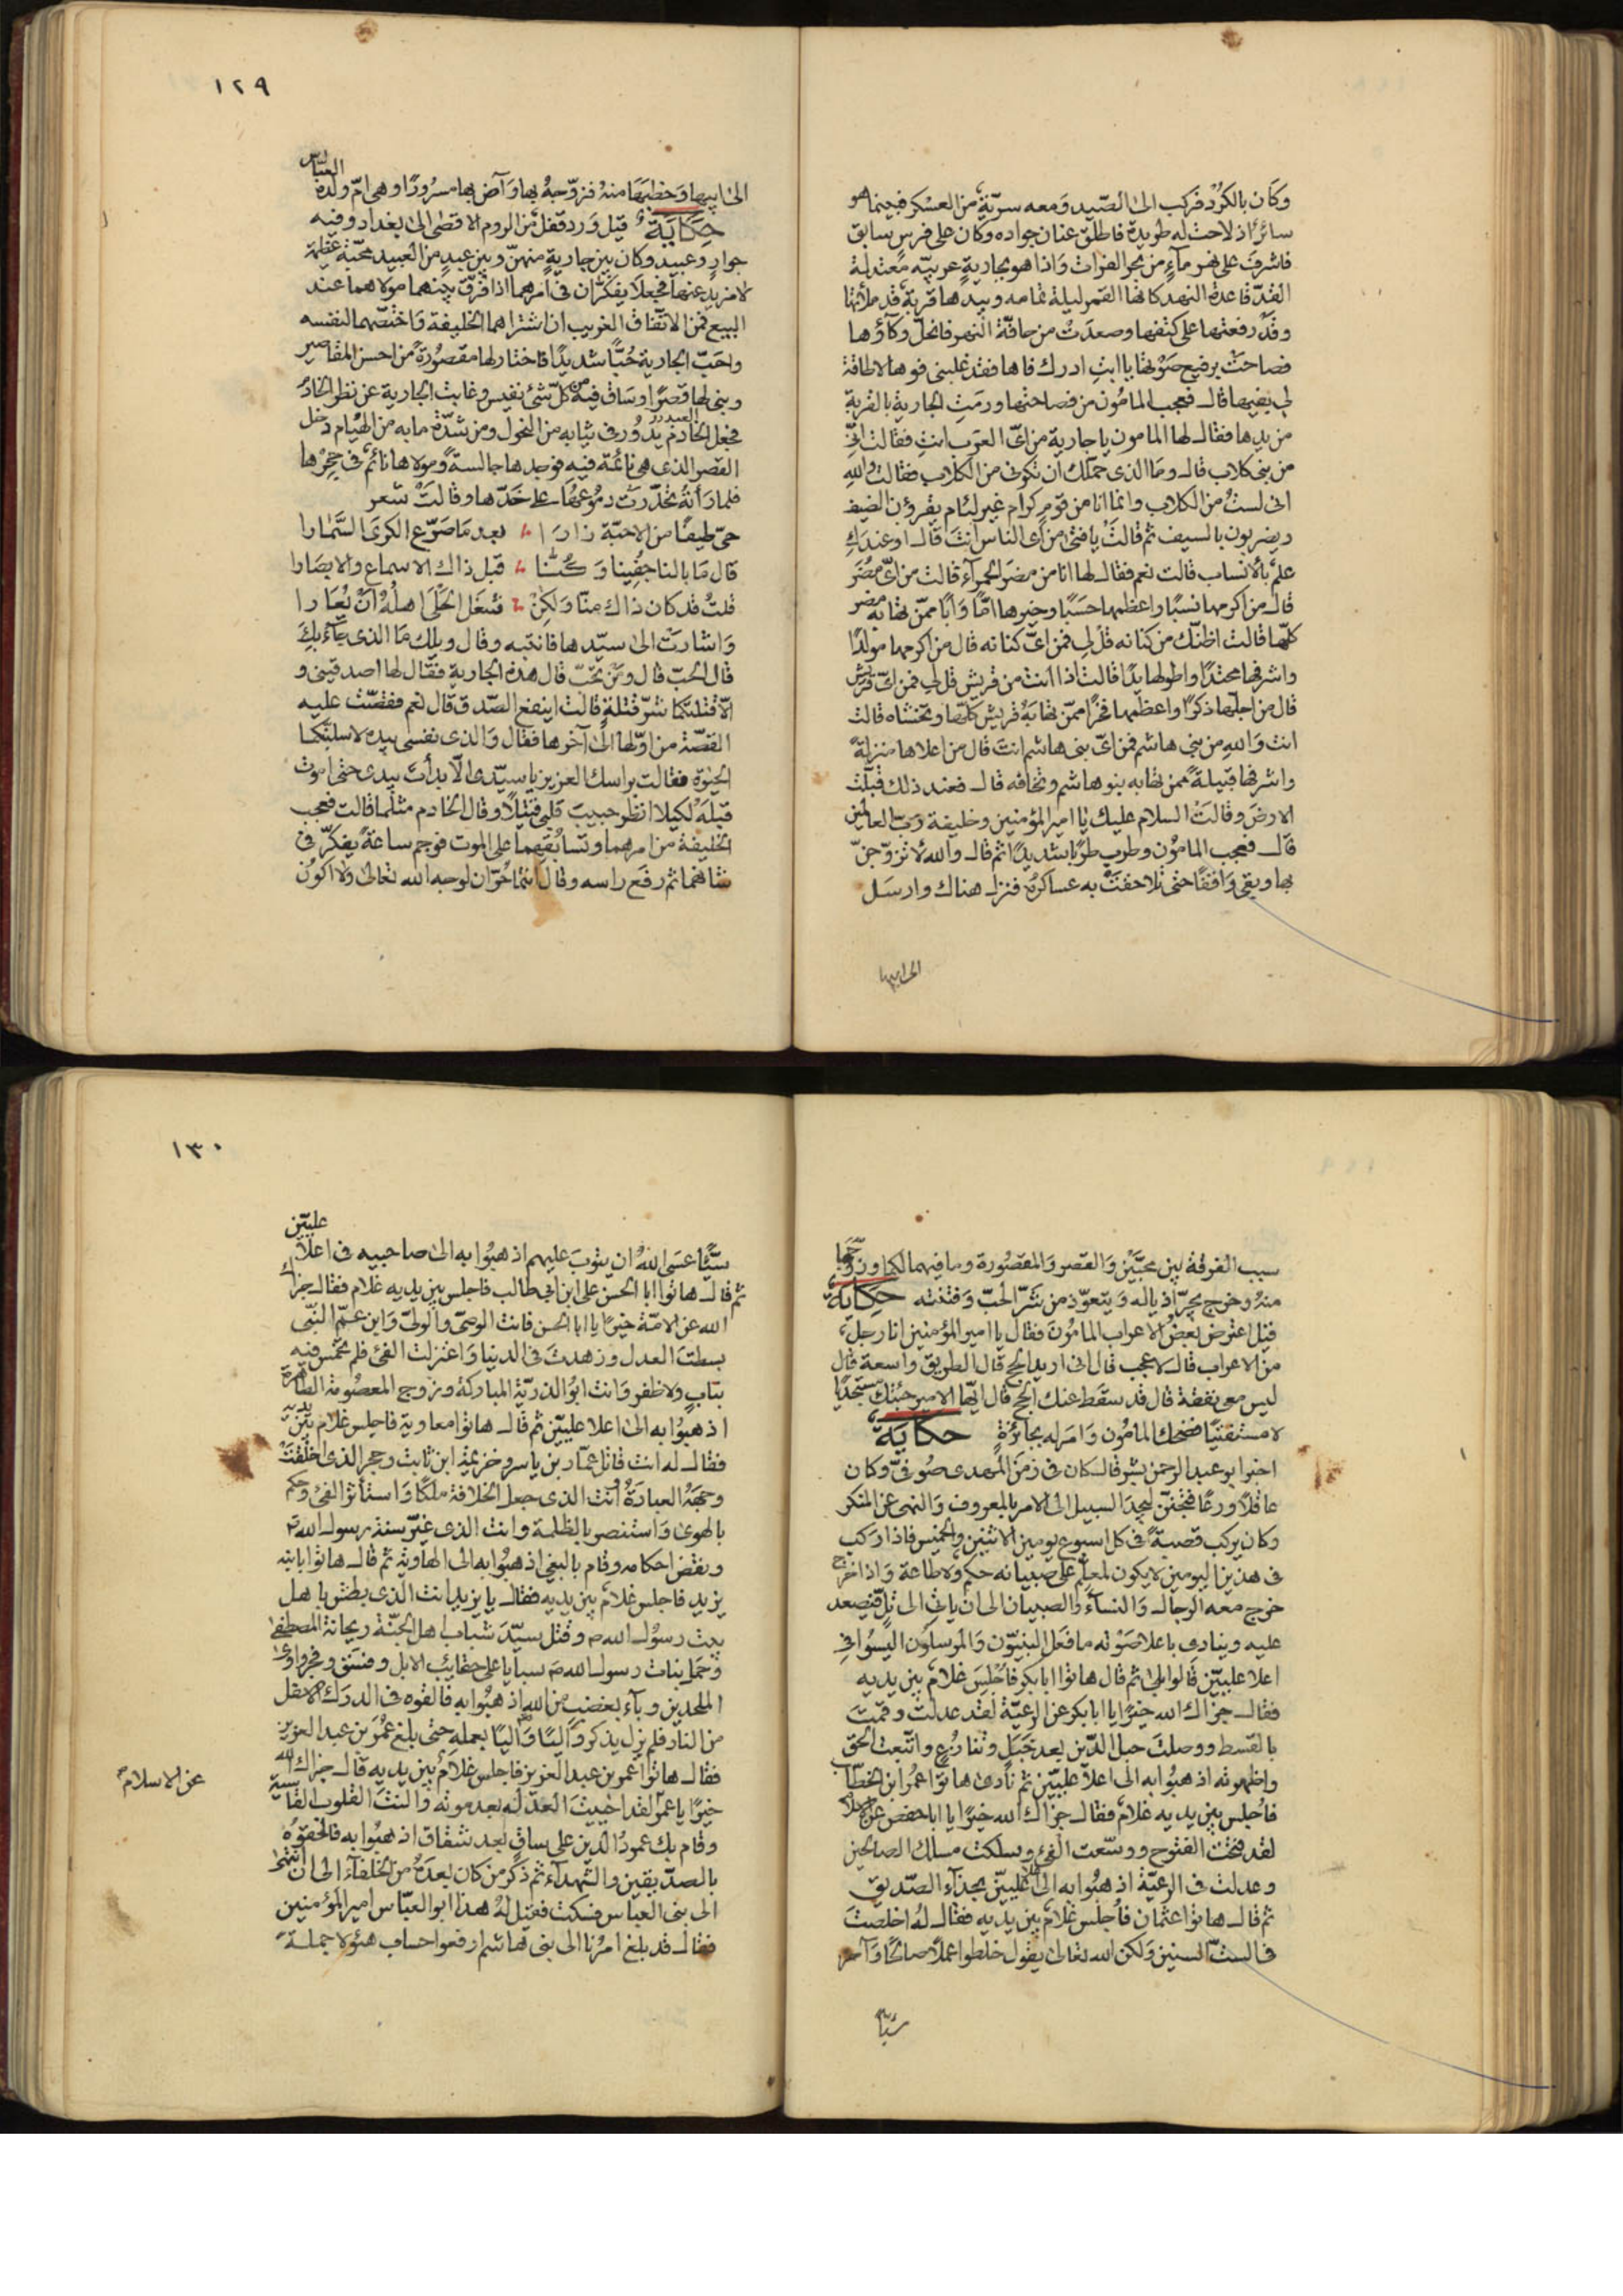 وكان بالكرد فركب الى الصيد ومعه سرية من العسكر فبينما هو
سائرا اذ لاحت له طريدة فاطلق عنان جواده وكان على فرس سابق
فاشرف على نهر مآء من بحر الفرات واذا هو بجارية عربيه معتدلة
القد قاعدة النهد كانها القمر ليلة تمامه وبيدها قربة قد ملأتها
وقد رفعتها على كتفها وصعدت من حافة النهر فانحل وكآؤها
فصاحت برفيع صوتها يا ابت ادرك فاها فقد غلبنى فوها لا طاقة
لى بفيها قال فعجب المامون من فصاحتها ورمت الجارية بالقربة
من يدها فقال لها المامون يا جارية من اى العرب انت فقالت انى
من بنى كلاب قال وما الذى حملك ان تكونى من الكلاب فقالت والله
انى لست من الكلاب وانما انا من قوم كرام غير لئام يقرؤن الضيف
ويضربون بالسيف ثم قالت يا فتى من اى الناس انت قال اوعندك
علم بالانساب قالت نعم فقال لها انا من مضر الحمرآء قالت من اى مضر
قال من اكرمها نسبا واعظمها حسبا وخيرها اما وابا ممن تهابه مضر
كلها قالت اظنك من كنانه قل لى فمن اى كنانه قال من اكرمها مولدا
واشرفها محتدا واطولها يدا قالت اذا انت من قريش قل لى فمن اى قريش
قال من اجلها ذكرا واعظمها فخرا ممن تهابه قريش كلها وتخشاه قالت
انت والله من بنى هاشم فمن اى بنى هاشم انت قال من اعلاها منزلة
واشرفها قبيلة ممن تهابه بنو هاشم وتخافه قال فعند ذلك قبلت
الارض وقالت السلام عليك يا امير المؤمنين وخليفة رب العالمين
قال فعجب المامون وطرب طربا شديدا ثم قال والله لاتزوجن
بها وبقى واقفا حتى تلاحقت به عساكره فنزل هناك وارسل
الى ابيها
١٢٩
الى ابيها وخطبها منه فزوجه بها وآض بها مسرورا وهى ام ولده العباس
حكاية قيل ورد قفل من الروم الاقصى الى بغداد وفيه
جوار وعبيد وكان بين جارية منهن وبين عبد من العبيد محبة عظيمة
لا مزيد عنها فجعلا يفكران فى امرهما اذا فرق بينهما مولاهما عند
البيع فمن الاتفاق الغريب ان اشتراهما الخليفة واختصهما لنفسه
واحب الجارية حبا شديدا فاختار لها مقصورة من احسن المقاصير
وبنى لها قصرا وساق فيه من كل شئ نفيس وغابت الجارية عن نظر الخادم
فجعل الخادم العبد يدور فى ثيابه من النحول ومن شدة ما به من الهيام دخل
القصر الذى هى نائمة فيه فوجدها جالسة ومولاها نائم فى حجرها
فلما رأته تحدرت دموعها على خدها وقالت شعر
حى طيفا من الاحبة زارا بعد ما صرع الكرى السمارا
قال ما بالنا جفينا وكنا قبل ذاك الاسماع والابصارا
قلت قد كان ذاك منا ولكن شغل الحلى اهله ان يعارا
واشارت الى سيدها فانتبه وقال ويلك ما الذى جآء بك
قال الحب قال ومن تحب قال هذه الجارية فقال لها اصدقينى و
الا قتلتكما شر قتلة قالت اينفع الصدق قال نعم فقصت عليه
القصة من اولها الى آخرها فقال والذى نفسى بيده لاسلبنكما
الحيوة فقالت براسك العزيز يا سيدى الا بدأت بيدى حتى اموت
قبله لكيلا انظر حبيب قلبى قتيلا وقال الخادم مثلما قالت فعجب
الخليفة من امرهما وتسابقهما على الموت فوجم ساعة يفكر فى
شانهما ثم رفع راسه وقال انتما حران لوجه الله تعالى ولا اكون
سبب الفرقة بين محبين والقصر والمقصورة وما فيهما لكما وزوجها
منه وخرج يجر اذياله ويتعوذ من شر الحب وفتنته حكاية
قيل اعترض بعض الاعراب المامون فقال يا امير المؤمنين انا رجل
من الاعراب قال لا عجب قال انى اريد الحج قال الطريق واسعة قال
ليس معى نفقة قال قد سقط عنك الحج قال ايها الامير جئتك مستجديا
لا مستفتيا فضحك المامون وامر له بجائزة حكاية
اخبرا بو عبد الرحمن بشر قال كان فى زمن المهدى صوفى وكان
عاقلا ورعا فتحمق ليجد السبيل الى الامر بالمعروف والنهى عن المنكر
وكان يركب قصبة فى كل اسبوع يومين الاثنين والخميس فاذا ركب
فى هذين اليومين لا يكون لمعلم على صبيانه حكم ولا طاعة واذا خرج
خرج معه الرجال والنسآء والصبيان الى ان ياتى الى تل فيصعد
عليه وينادى باعلا صوته ما فعل النبيون والمرسلون اليسوا فى
اعلا عليين قالوا بلى ثم قال هاتوا ابا بكر فاجلس غلام بين يديه
فقال جزاك الله خيرا يا ابا بكر عن الرعية لقد عدلت وقمت
بالقسط ووصلت حبل الدين بعد وتنازع واتبعت الحق
واظهرته اذهبوا به الى اعلا عليين ثم نادى هاتوا عمر ابن الخطاب
فاجلس بين يديه غلام فقال جزاك الله خيرا يا ابا حفص عن الاسلام
لقد فتحت الفتوح ووسعت الفئ وسلكت مسلك الصالحين
وعدلت فى الرعية اذهبوا به الى اعلا عليين بحذآء الصديق
ثم قال هاتوا عثمان فاجلس غلام بين يديه فقال له اخلصت
فى الست السنين ولكن الله تعالى يقول خلطوا عملا صالحا وآخر
سيئا
١٣٠
سيئا عسى الله ان يتوب عليهم اذهبوا به الى صاحبيه فى اعلا عليين
ثم قال هاتوا ابا الحسن على ابن ابى طالب فاجلس بين يديه غلام فقال جزاك
الله عن الامة خيرا يا ابا الحسن فانت الوصى والولى وابن عم النبى
بسطت العدل وزهدت فى الدنيا واعتزلت الفئ فلم تخمش فيه
بناب ولا ظفر وانت ابو الذرية المباركة وزوج المعصومة الطاهرة
اذهبوا به الى اعلا عليين ثم قال هاتوا معاوية فاجلس غلام بين يديه
فقال له انت قاتل عمار بن ياسر وخزيمة ابن ثابت وحجر الذى اخلقت
وجهه العبادة انت الذى جعل الخلافة ملكا واستأثر الفئ وحكم
بالهوى واستنصر بالظلمة وانت الذى غير سنة رسول الله
ونقض احكامه وقام بالبغى اذهبوا به الى الهاوية ثم قال هاتوا بابنه
يزيد فاجلس غلام بين يديه فقال يا يزيد انت الذى بطش باهل
بيت رسول الله ص وقتل سيد شباب اهل الجنة ريحانة المصطفى
وحمل بنات رسول الله ص سبايا على حقائب الابل وفسق وفجر واوى
الملحدين وبآء بغضب من الله اذهبوا به فالقوه فى الدرك الاسفل
من النار فلم يزل يذكر واليا واليا بعمله حتى بلغ عمر بن عبد العزيز
فقال هاتوا عمر بن عبد العزيز فاجلس غلام بين يديه قال جزاك الله
عن الاسلام
خيرا يا عمر لقد احييت العدل بعد موته والنت القلوب القاسية
وقام بك عمود الدين على ساق بعد شقاق اذهبوا به فالحقوه
بالصديقين والشهدآء ثم ذكر من كان بعده من الخلفآء الى ان انتهى
الى بنى العباس فسكت فقيل له هذا ابو العباس امير المؤمنين
فقال قد بلغ امرنا الى بنى هاشم ارفعوا حساب هئولا جملة